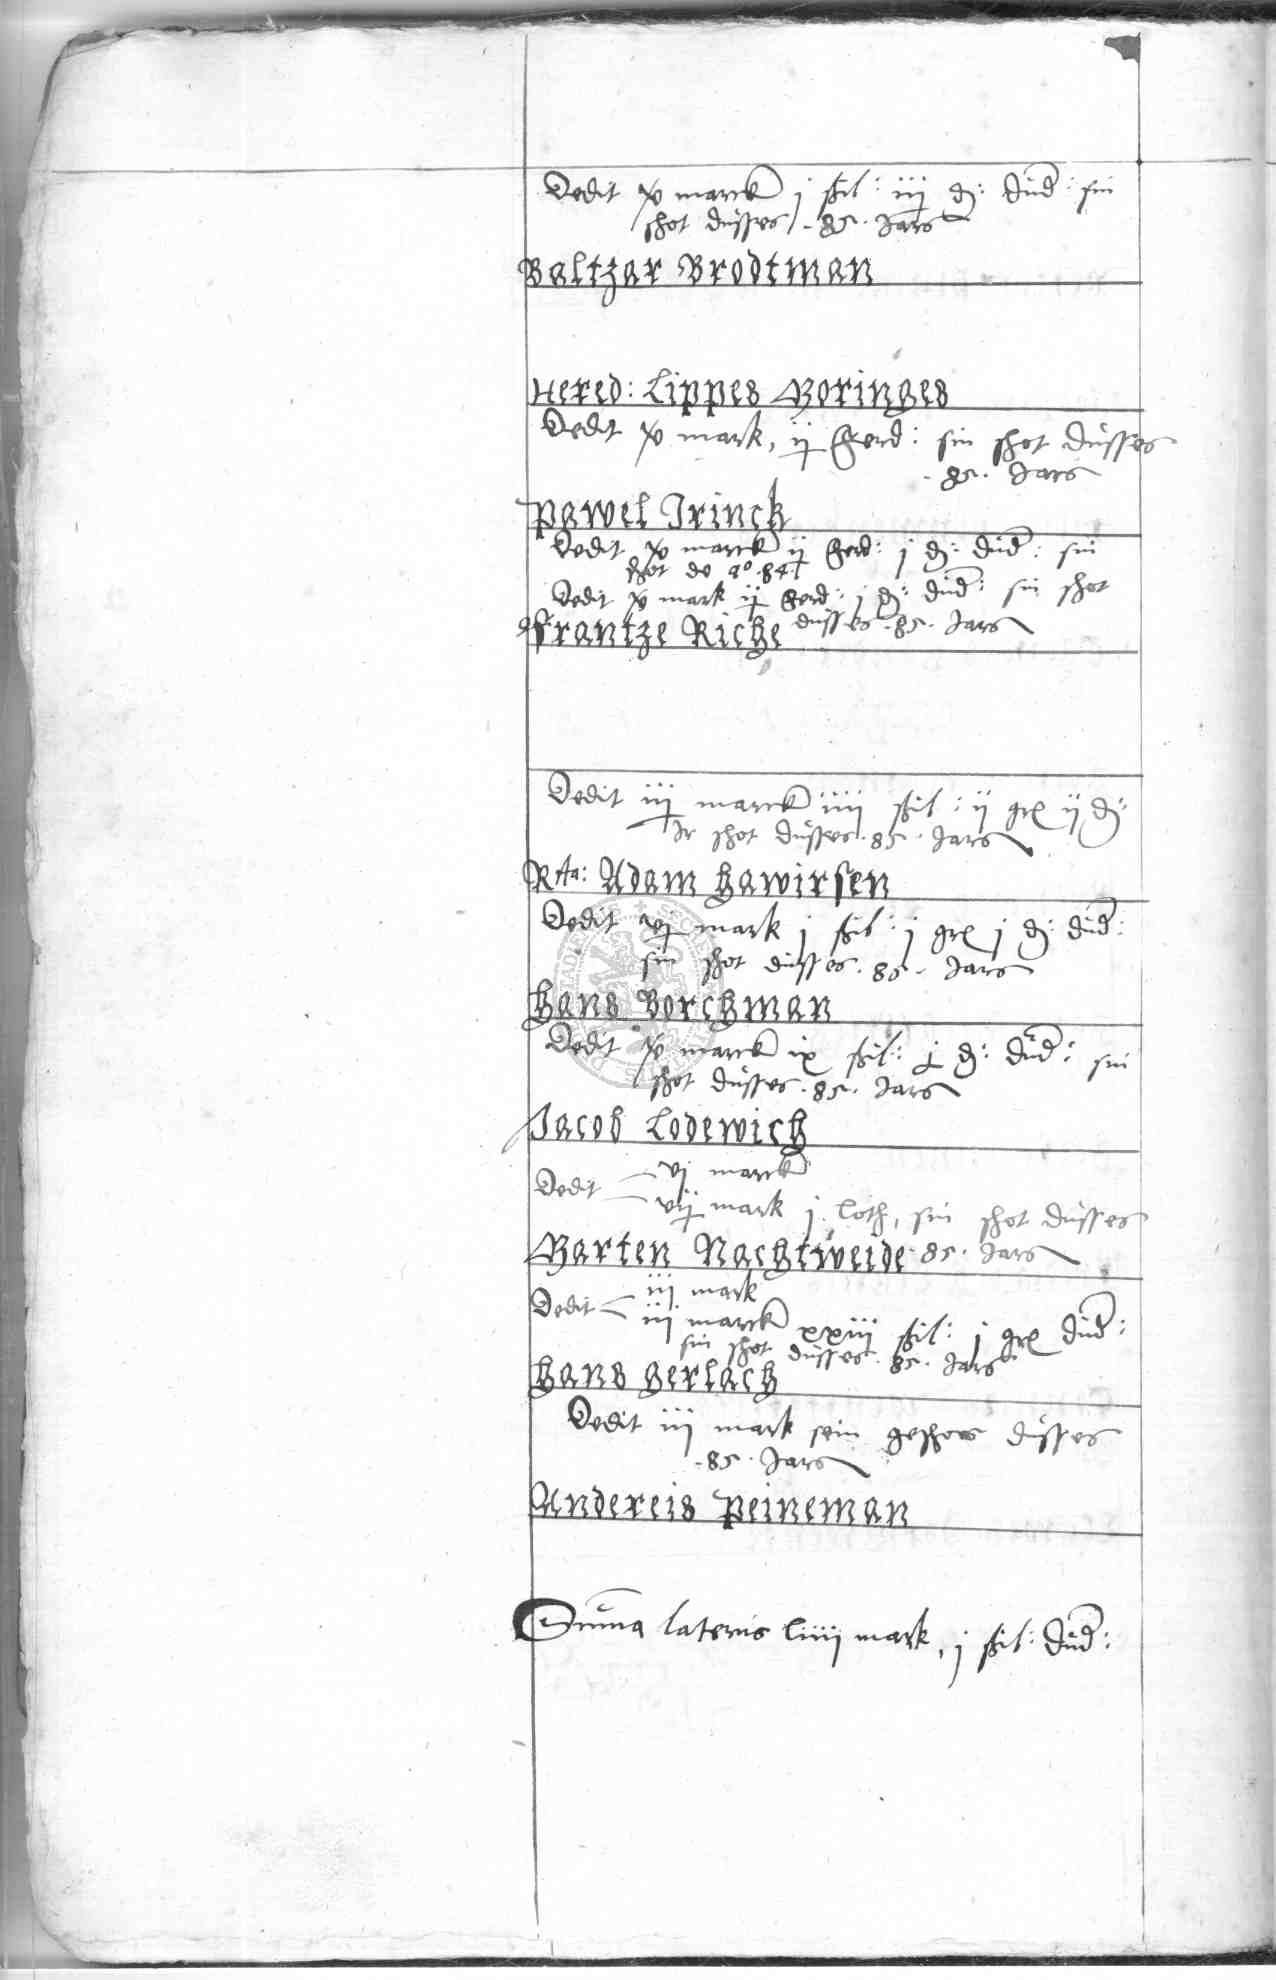 Dedit xv marck j ßil: iij d: düd: sin
shot düsses .85. Jars
Baltzar Brodtman
Hered: Lippes Boringes
Dedit xv mark, ij ferd: sin shot düsses
.85. Jars
Pawel Irinck
Dedit xv marck ij ferd: j d: düd: sin
shot de ao .84.
Dedit xv mark ij ferd: j d: düd: sin shot
düsses .85. Jars
Frantze Riche
Dedit iij marck iiij ßil: ij gr ij d:
Ir shot düsses .85. Jars
Rta: Adam Hawirsen
Dedit vj mark j ßil: j gr j d: düd:
sin shot düsses .85. Jars
Hans Borchman
Dedit xv marck ix ßil: j d: düd: sin
shot düsses .85. Jars
Jacob Lodewich
Dedit vj marck
vij mark j loth, sin shot düsses
.85. Jars
Barten Nachtweide
Dedit iij mark
iij marck xxiii ßil: j gr düd:
sin shot düsses .85. Jars
Hans Gerlach
Dedit iij mark sein geshoes düsses
.85. Jars
Andereis Peineman
Summa lateris liiij mark, j ßil: düd: